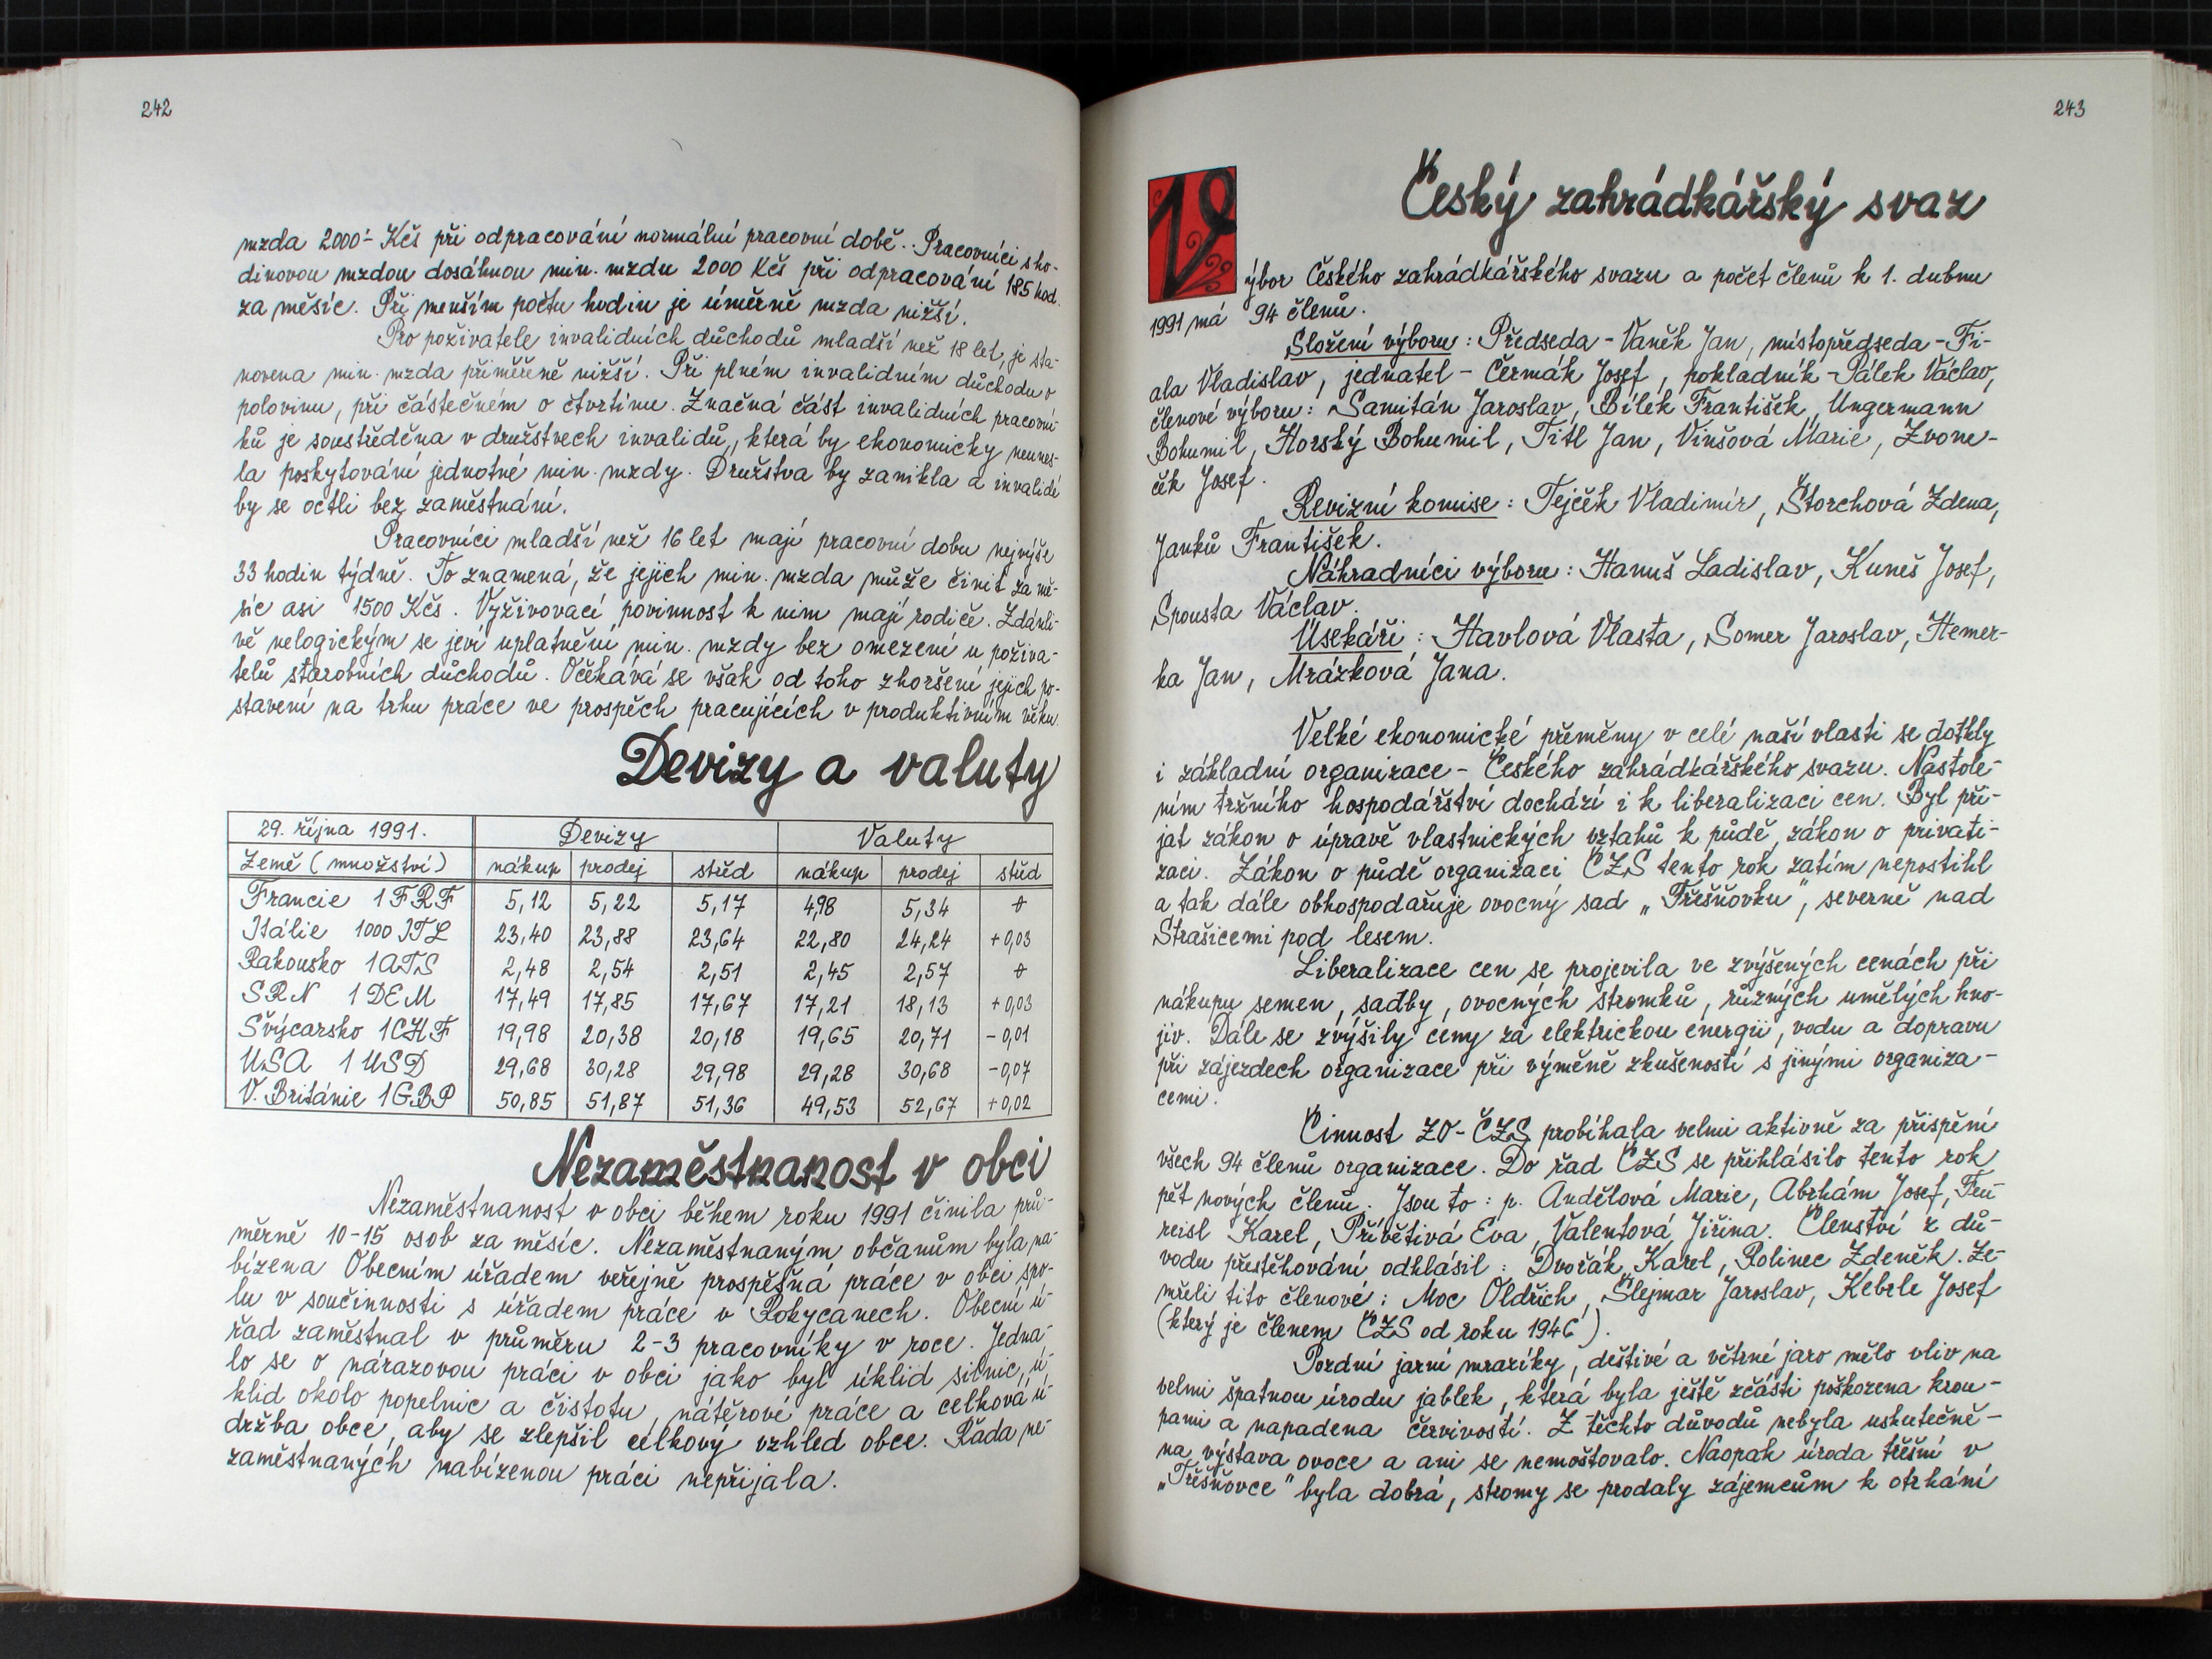 242
mzda 2000'- Kčs při odpracování normální pracovní době.. Pracovníci s ho-
dinovou mzdou dosáhnou min. mzdu 2000 Kčs při odpracování 185 hod.
za měsíc. Při menším počtu hodin je úměrně mzda nižší.
Pro poživatele invalidních důchodů mladší než 18 let, je sta-
novena min. mzda přiměřeně nižší. Při plném invalidním důchodu o
polovinu, při částečném o čtvrtinu. Značná část invalidních pracovní-
ků je soustředěna v družstvech invalidů, která by ekonomicky neunes-
la poskytování jednotné min. mzdy. Družstva by zanikla a invalidé
by se octli bez zaměstnání.
Pracovníci mladší než 16 let mají pracovní dobu nejvýše
33 hodin týdně. To znamená, že jejich min. mzda může činit za mě-
síc asi 1500 Kčs. Vyživovací povinnost k nim mají rodiče. Zdánli-
vě nelogickým se jeví uplatnění min. mzdy bez omezení u poživa-
telů starobních důchodů. Očekává se však od toho zhoršení jejich po-
stavení na trhu práce ve prospěch pracujících v produktivním věku.
Devizy a valuty
29. října 1991. Devizy Valuty
Země (množství) nákup prodej střed nákup prodej střed
Francie 1 FRF 5,12 5,22 5,17 4,98 5,34 0
Itálie 1000 ITL 23,40 23,88 23,64 22,80 24,24 +0,03
Rakousko 1 ATS 2,48 2,54 2,51 2,45 2,57 0
SRN 1 DEM 17,49 17,85 17,67 17,21 18,13 +0,03
Švýcarsko 1 CHF 19,98 20,38 20,18 19,65 20,71 -0,01
USA 1 USD 29,68 30,28 29,98 29,28 30,68 -0,07
V. Británie 1 GBP 50,85 51,87 51,36 49,53 52,67 +0,02
Nezaměstnanost v obci
Nezaměstnanost v obci během roku 1991 činila prů-
měrně 10-15 osob za měsíc. Nezaměstnaným občanům byla na-
bízena Obecním úřadem veřejně prospěšná práce v obci spo-
lu v součinnosti s úřadem práce v Rokycanech. Obecní ú-
řad zaměstnal v průměru 2-3 pracovníky v roce. Jedna-
lo se o nárazovou práci v obci jako byl úklid silnic, ú-
klid okolo popelnic a čistotu, nátěrové práce a celková ú-
držba obce, aby se zlepšil celkový vzhled obce. Řada ne-
zaměstnaných nabízenou práci nepřijala.
243
Český zahrádkářský svaz
Výbor Českého zahrádkářského svazu a počet členů k 1. dubnu
1991 má 94 členů.
Složení výboru: Předseda - Vaněk Jan, místopředseda - Fi-
ala Vladislav, jednatel - Čermák Josef, pokladník - Pálek Václav,
členové výboru: Samitán Jaroslav, Bílek František, Ungermann
Bohumil, Horský Bohumil, Títl Jan, Vinšová Marie, Zvone-
ček Josef.
Revizní komise: Tejček Vladimír, Štorchová Zdena,
Janků František.
Náhradníci výboru: Hanuš Ladislav, Kuneš Josef,
Spousta Václav.
Úsekáři: Havlová Vlasta, Somer Jaroslav, Hemer-
ka Jan, Mrázková Jana.
Velké ekonomické přeměny v celé naší vlasti se dotkly
i základní organizace - Českého zahrádkářského svazu. Nastole-
ním tržního hospodářství dochází i k liberalizaci cen. Byl při-
jat zákon o úpravě vlastnických vztahů k půdě, zákon o privati-
zaci. Zákon o půdě organizaci ČZS tento rok zatím nepostihl
a tak dále obhospodařuje ovocný sad „Třešňovku", severně nad
Strašicemi pod lesem.
Liberalizace cen se projevila ve zvýšených cenách při
nákupu semen, sadby, ovocných stromků, různých umělých hno-
jiv. Dále se zvýšily ceny za elektrickou energii, vodu a dopravu
při zájezdech organizace při výměně zkušeností s jinými organiza-
cemi.
Činnost ZO-ČZS probíhala velmi aktivně za přispění
všech 94 členů organizace. Do řad ČZS se přihlásilo tento rok
pět nových členů. Jsou to: p. Andělová Marie, Abrhám Josef, Feu-
reisl Karel, Přívětivá Eva, Valentová Jiřina. Členství z dů-
vodu přestěhování odhlásil: Dvořák Karel, Polinec Zdeněk. Ze-
mřeli tito členové: Moc Oldřich, Šlejmar Jaroslav, Keberle Josef
(který je členem ČZS od roku 1946).
Pozdní jarní mrazíky, deštivé a větrné jaro mělo vliv na
velmi špatnou úrodu jablek, která byla ještě zčásti poškozena krou-
pami a napadena červivostí. Z těchto důvodů nebyla uskutečně-
na výstava ovoce a ani se nemoštovalo. Naopak úroda třešní v
„Třešňovce" byla dobrá, stromy se prodaly zájemcům k otrhání